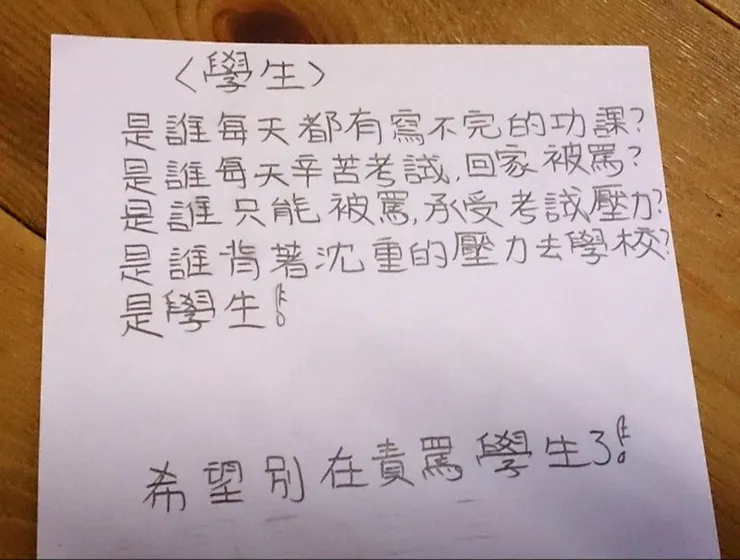 〈學生〉
是誰每天都有寫不完的功課?
是誰每天辛苦考試,回家被罵?
是誰只能被罵,承受考試壓力?
是誰背著沈重的壓力去學校?
是學生!
希望別在責罵學生了!